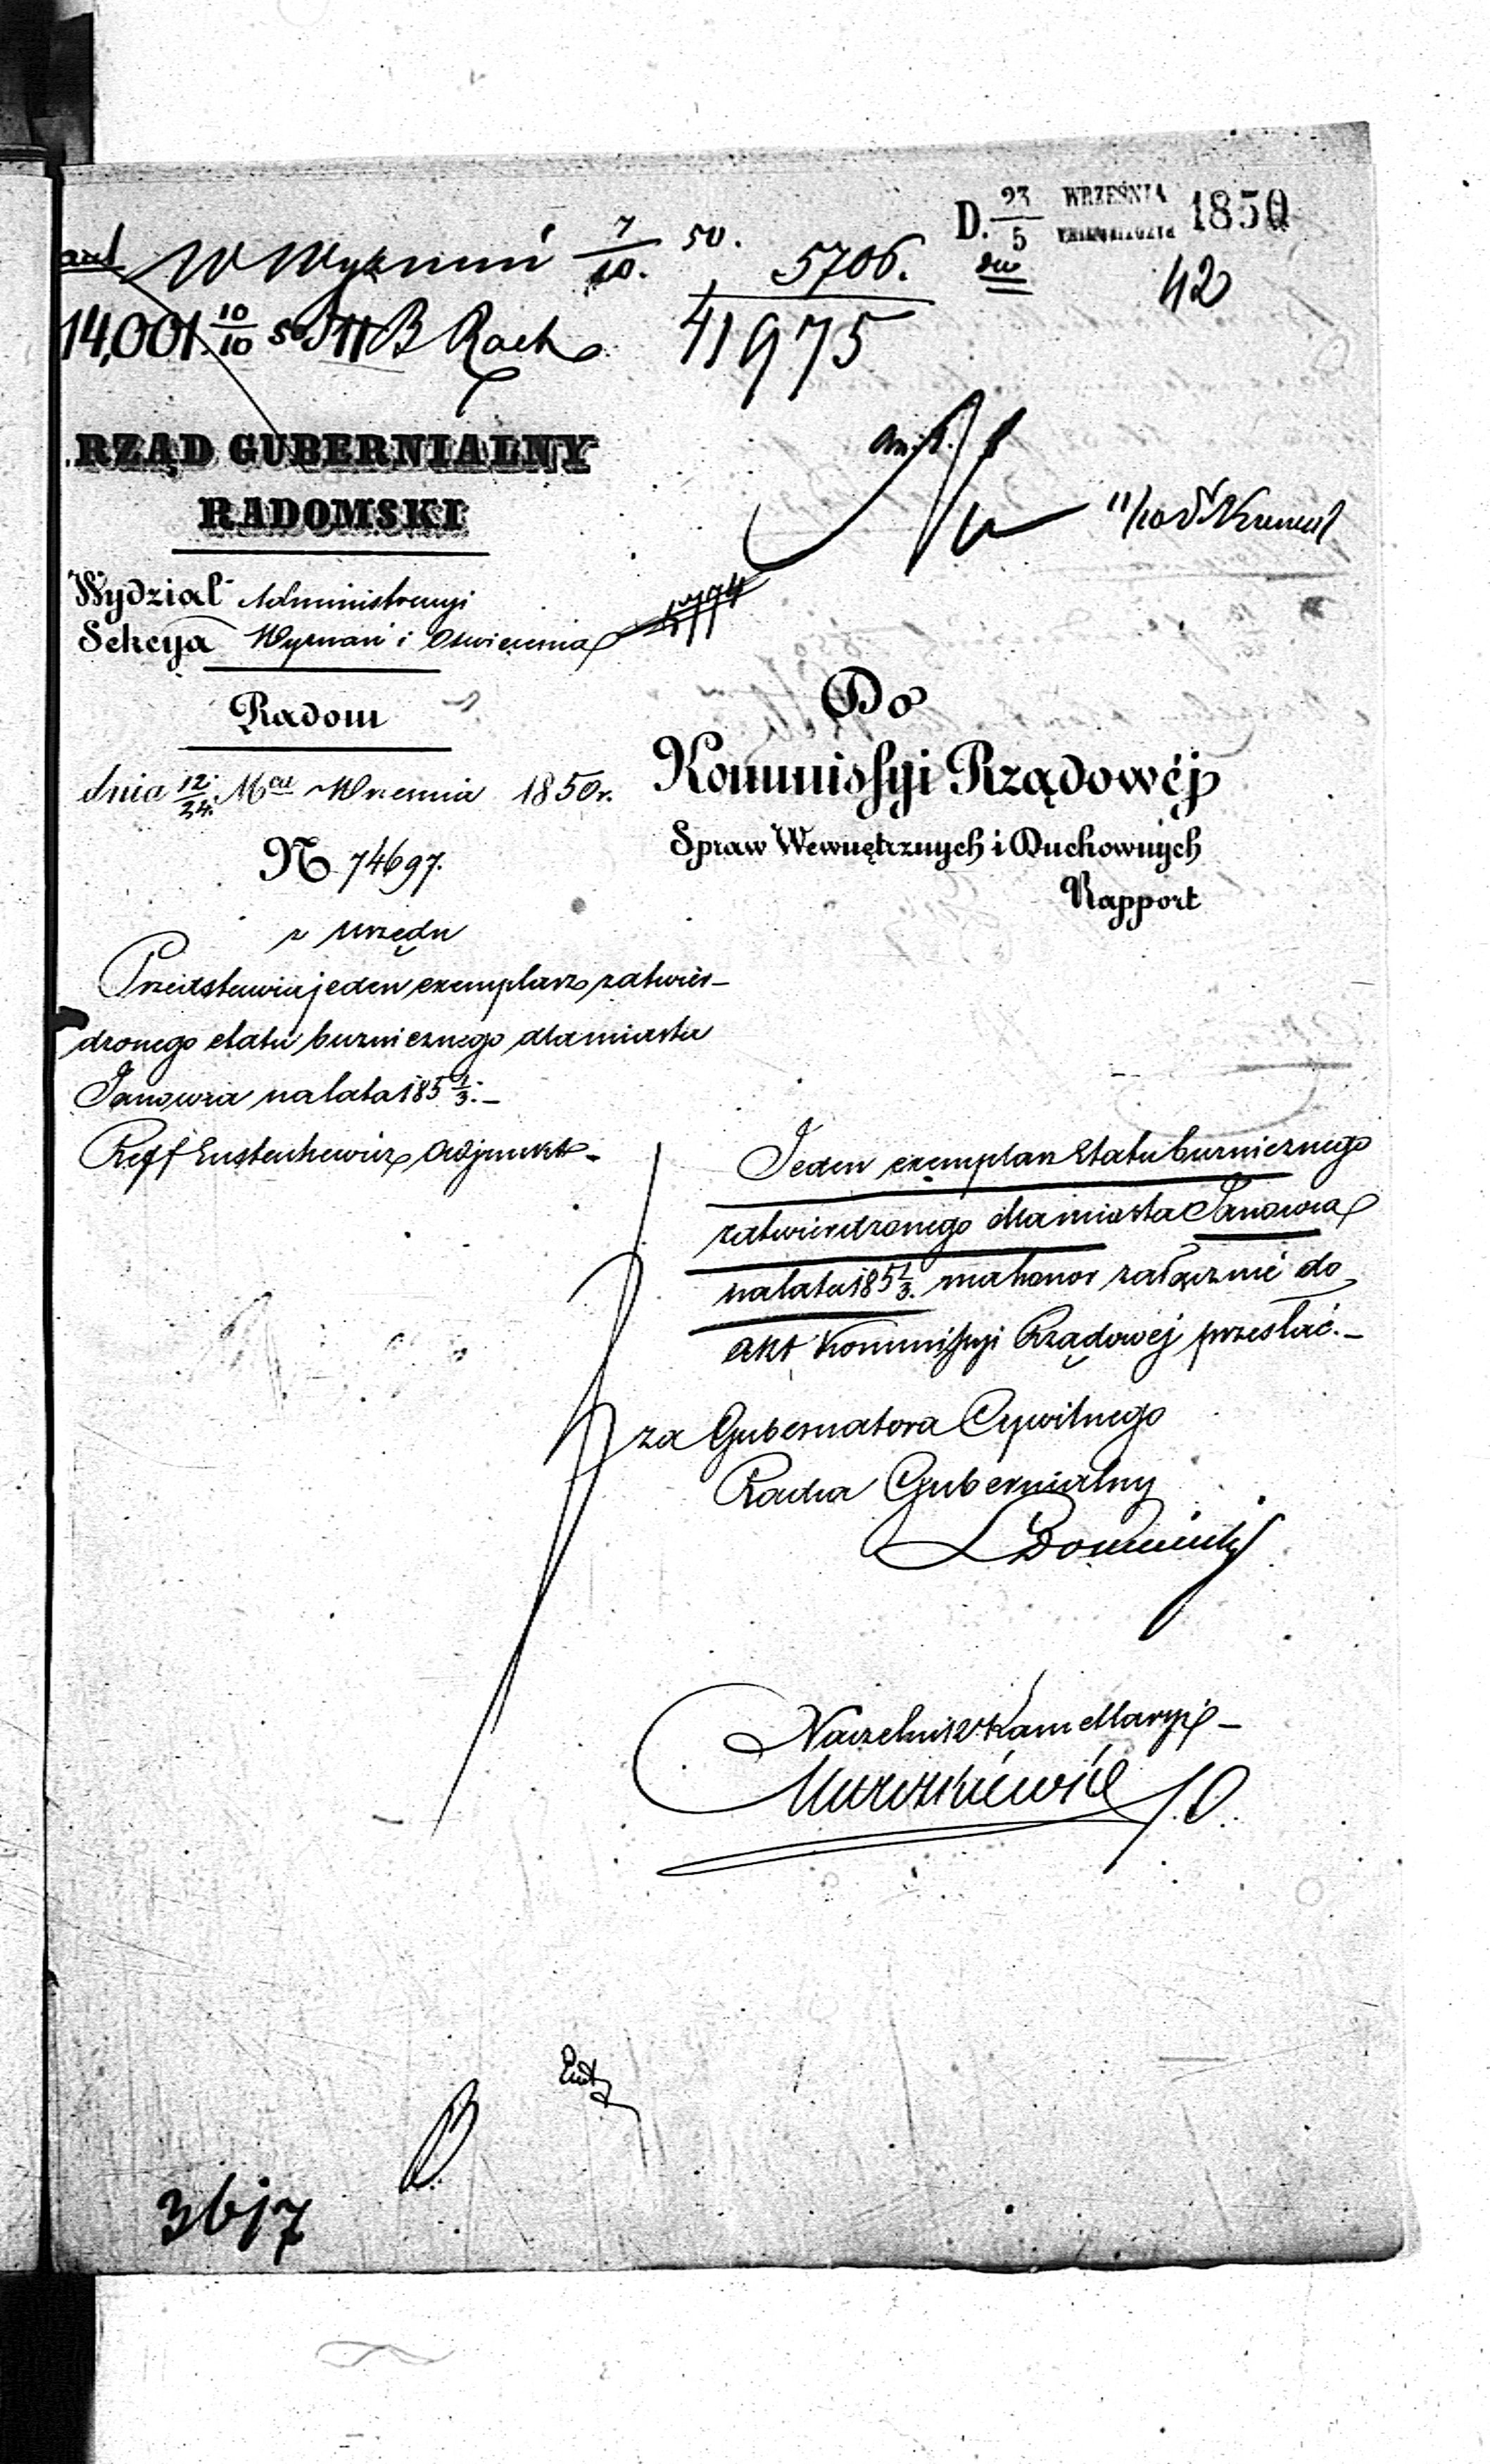 D. 23/5 WRZEŚNIA 1850
W Wyznań 7/10. 50.
5706.
42
14,001. 10/10 50
41975
RZĄD GUBERNIALNY
RADOMSKI
Wydział Administracyi
Sekcya Wyznań i Oświecenia
Radom
dnia 12/24. Mca Września 1850 r.
N 74697.
z Urzędu
Przedstawia jeden exemplarz zatwier-
dzonego etatu buźniczego dla miasta
Janowa na lata 185 1/3.-
Reff Eustachewicz Adjunkt.-
Do
Kommissyi Rządowéj
Spraw Wewnętrznych i Duchownych
Rapport
Jeden exemplarz Etatu buźniczego
zatwierdzonego dla miasta Janowa
na lata 185 1/3. ma honor załącznie do
akt Kommissyi Rządowéj przesłać.-
za Gubernatora Cywilnego
Radca Gubernialny
Naczelnik Kancellaryi
3617